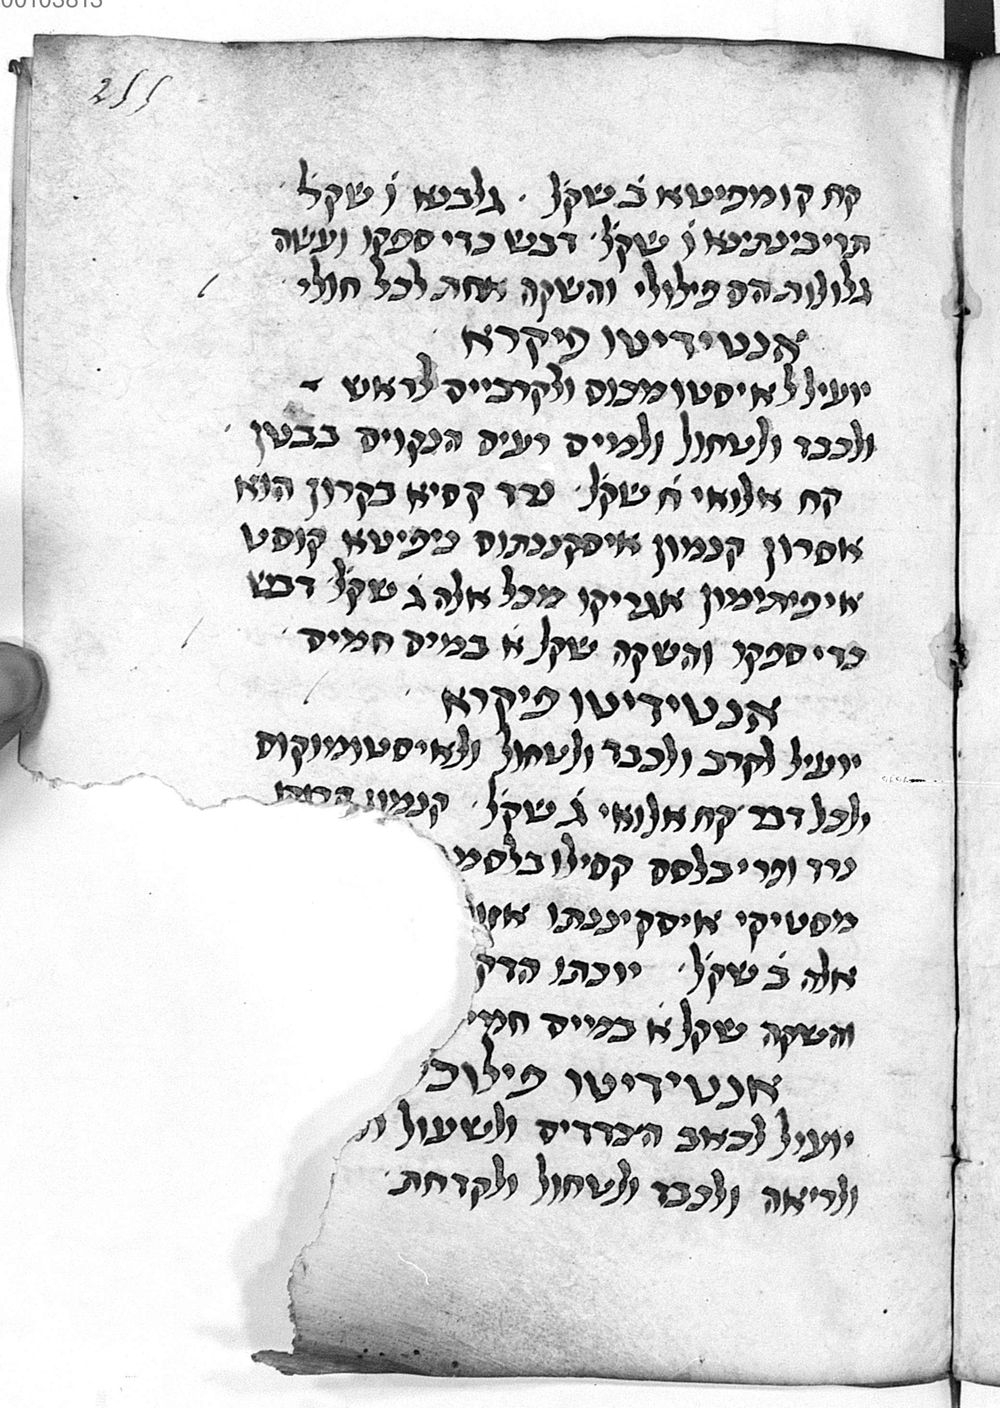 קח קומפיטא ב̇ שקל̇ · גלבנא ו̇ שקל̇
תריבינתינא ו̇ שקל̇ · דבש כדי ספקו ועשה
גלולות הם פילולי והשקה אחת לכל חולי ·
אנטידיטו פיקרא
יועיל לאיסטומכוס ולקרביים לראש
ולכבד ולטחול ולמים רעים הנקוים בבטן ·
קח אלואי ח̇ שקל̇ · נרד קסיא בקרון הוא
אסרון קנמון איסקננתוס קוסט
איפיתימון אגריקו מכל אלה ג̇ שקל̇ דבש
כדי ספקו והשקה שקל א̇ במים חמים ·
אנטידיטו פיקרא ·
יועיל לקרב ולכבד ולטחול ולאיסטומוקוס
ולכל דבר קח אלואי ג̇ שקל̇ · קנמון
נרד ופרי בלסם קסילו בלסמ
מסטיקי איסקיננתו
אלה ב̇ שקל̇ · יוכתו הדק
והשקה שקל א̇ במיים חמי
אנטידיטו פילוכ
יועיל לכאב הצדדים ולשעול
ולריאה ולכבד ולטחול ולקדחת ·